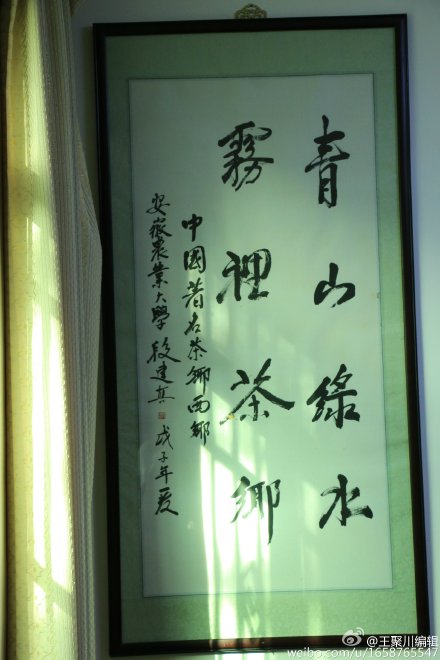 青山綠水
霧裡茶鄉
中國著名茶鄉西鄉
安徽農業大學 段建真 戊子年夏
王聚川编辑
weibo.com/u/1658765547